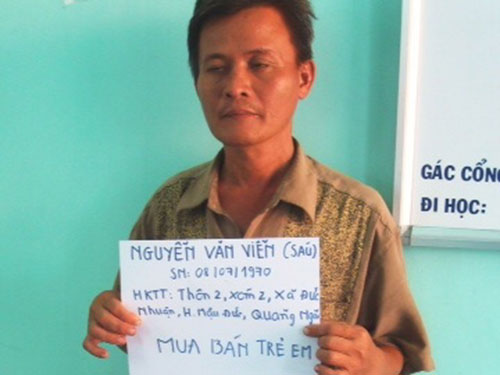 NGUYỄN VĂN VIỄN (SÁU)
SN: 08/07/1970
HKTT: Thôn 2, xóm 2, Xã Đức
Nhuận, H. Mậu Đức, Quảng Ngãi
MUA BÁN TRẺ EM
GÁC CỔNG
ĐI HỌC: